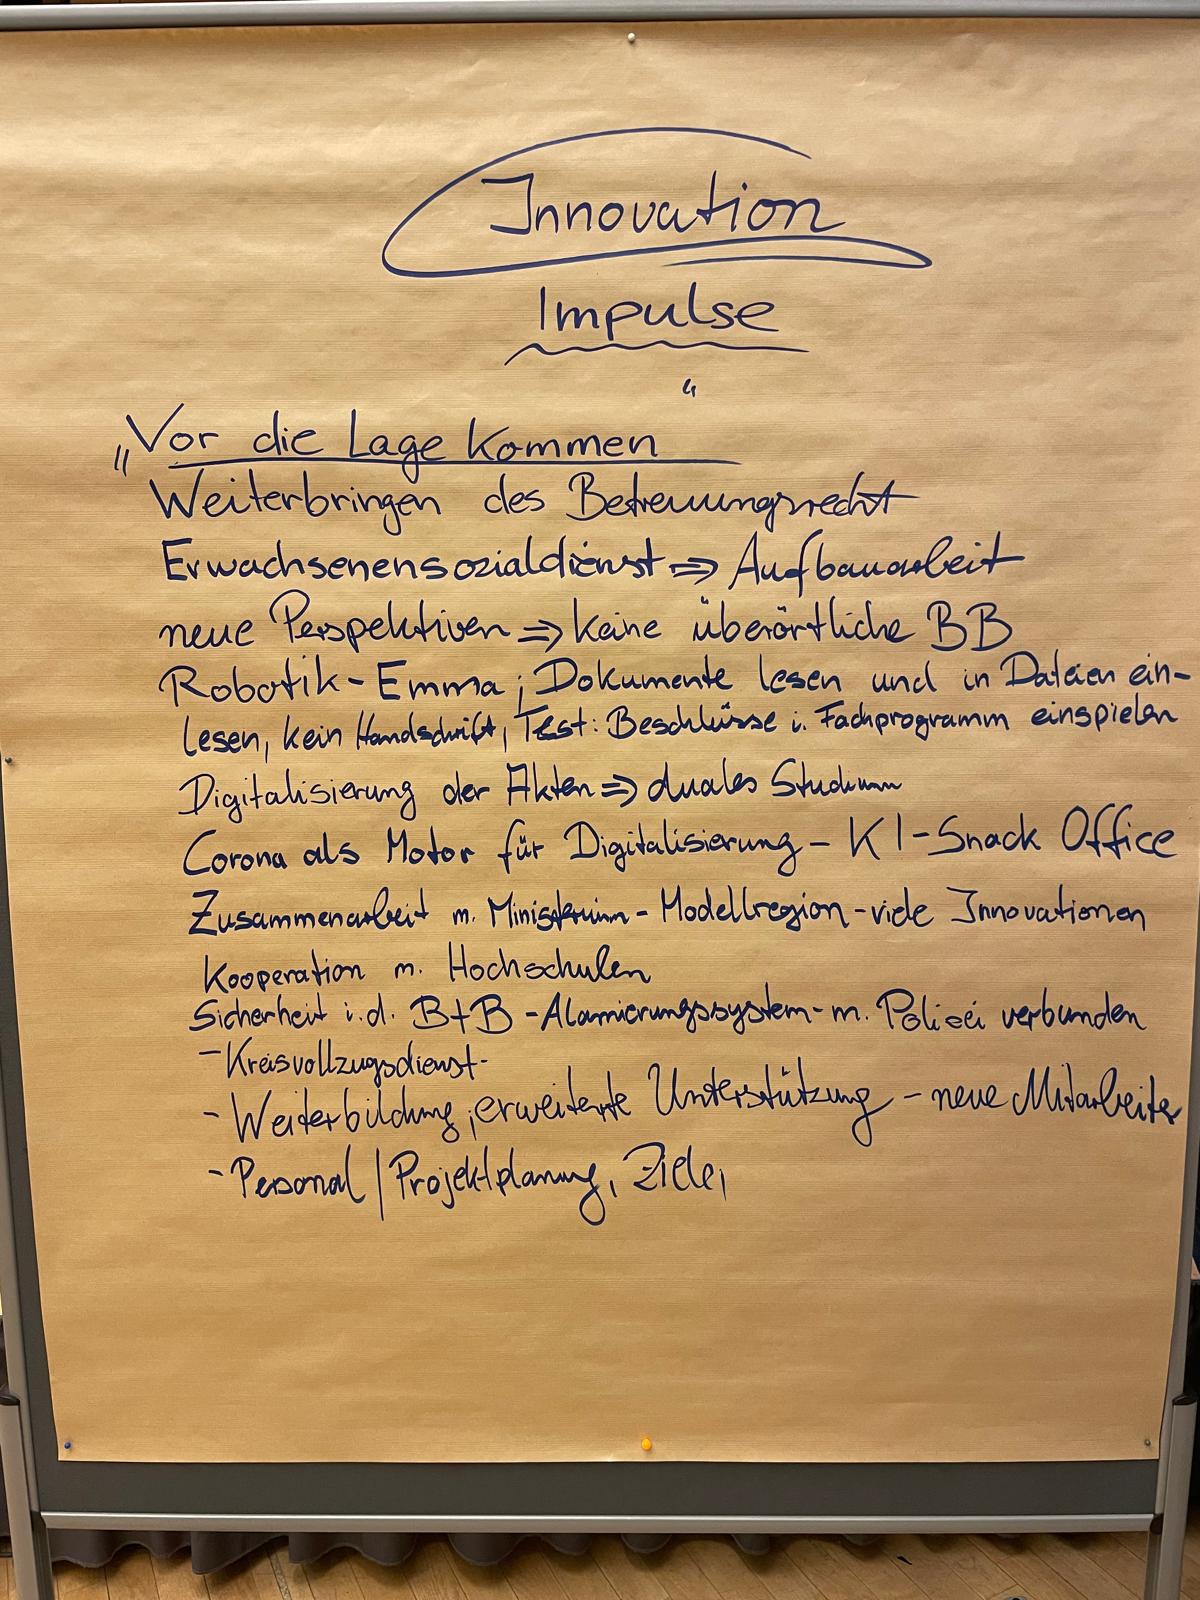 Innovation
Impulse
„Vor die Lage kommen“
Weiterbringen des Betreuungsrecht
Erwachsenensozialdienst => Aufbauarbeit
neue Perspektiven => keine überörtliche BB
Robotik - Emma ; Dokumente lesen und in Dateien ein-
lesen, kein Handschrift, Test: Beschlüsse i. Fachprogramm einspielen
Digitalisierung der Akten => duales Studium
Corona als Motor für Digitalisierung - KI-Snack Office
Zusammenarbeit m. Ministerium - Modellregion - viele Innovationen
Kooperation m. Hochschulen
Sicherheit i.d. B+B - Alarmierungssystem - m. Polizei verbunden
- Kreisvollzugsdienst -
- Weiterbildung ; erweiterte Unterstützung - neue Mitarbeiter
- Personal / Projektplanung, Ziele,